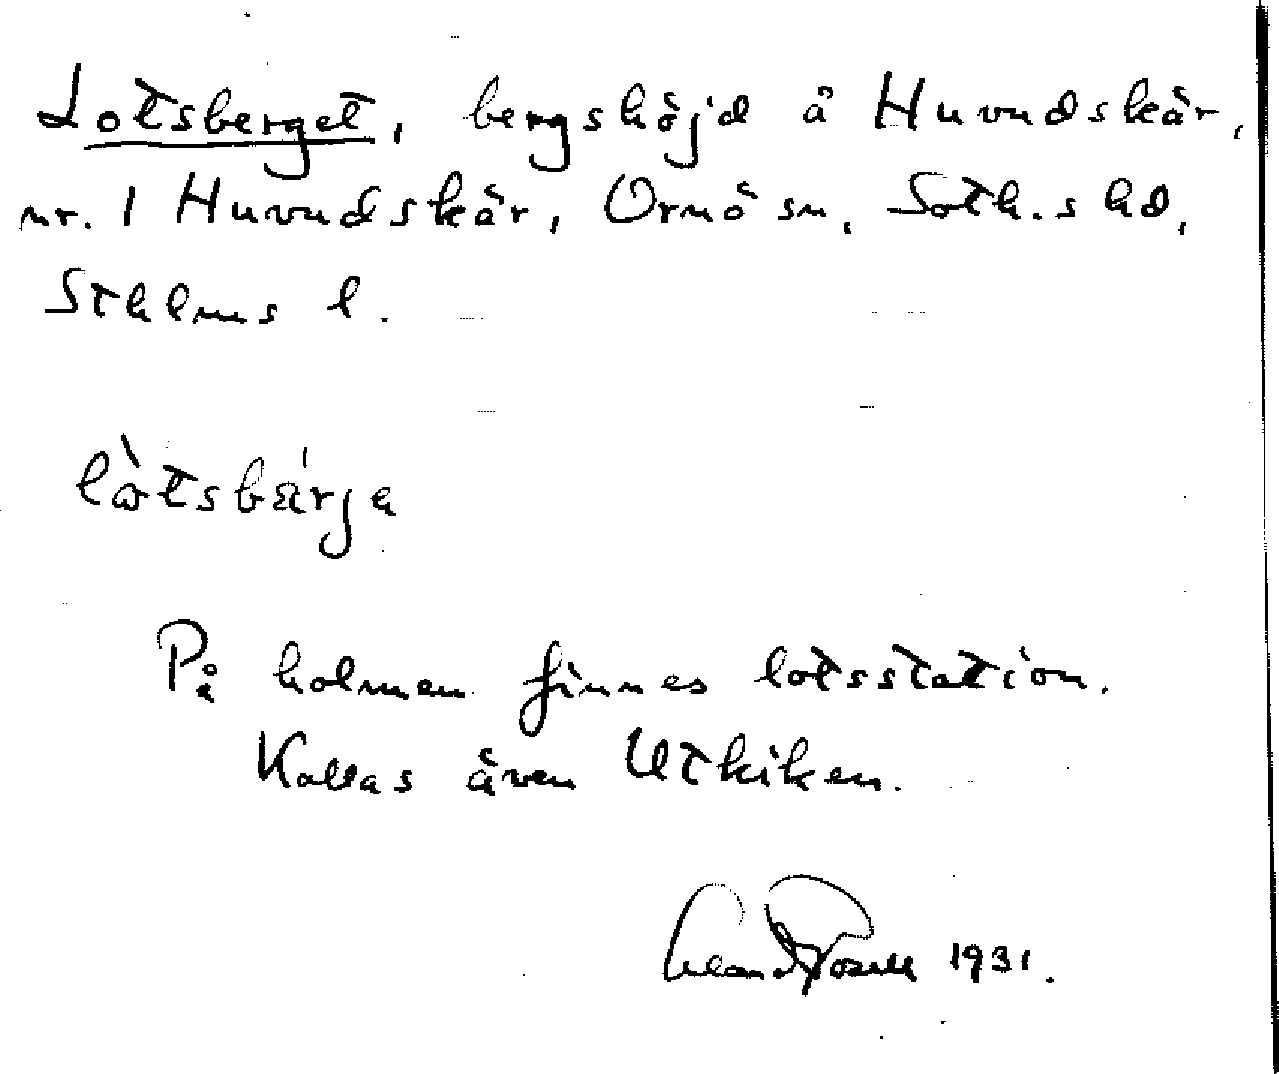 Lotsberget, bergshöjd å Huvudskär,
nr. 1 Huvudskär, Ornö sn, Soth.s hd,
Sthlms l.
lòtsbä́rja
På holmen finnes lotsstation.
Kallas även Utkiken.
Erland Rosell 1931.